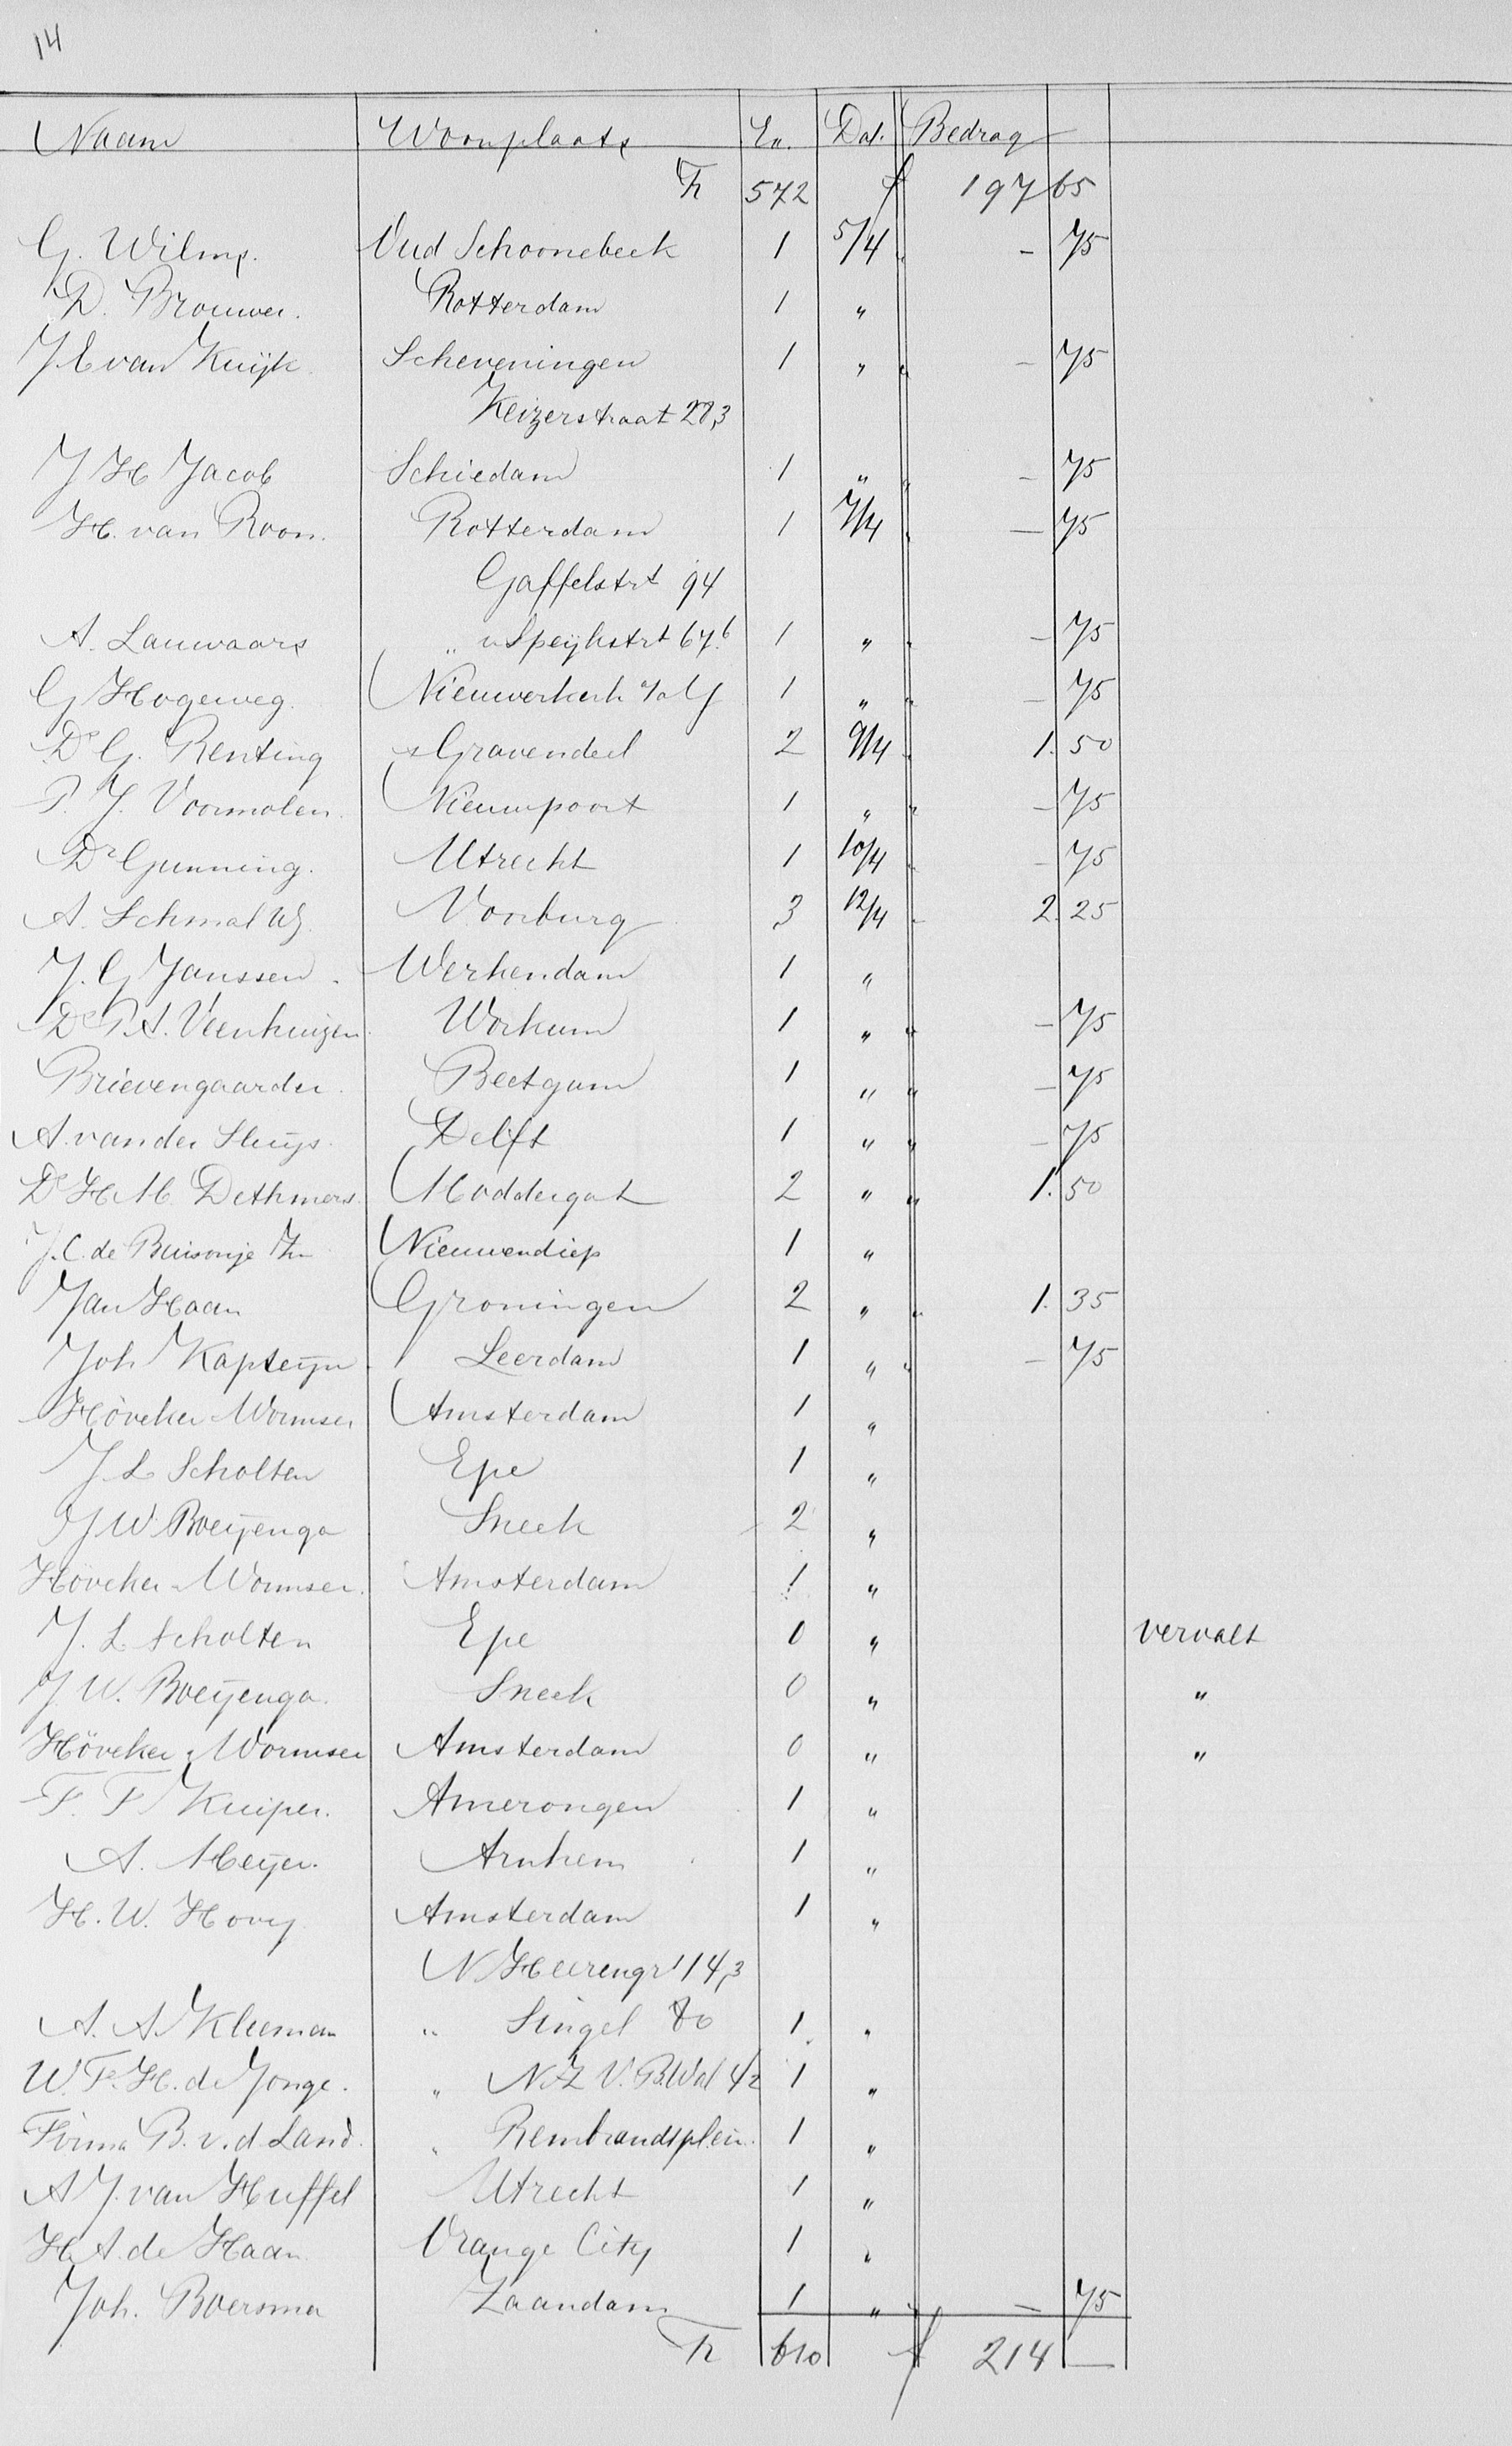 14
Naam Woonplaats Ex. Dat. Bedrag
Tr 572 f 197 65
G. Wilms. Oud Schoonebeek 1 5/4 " - 75
D. Brouwer. Rotterdam 1 "
J E van Kuijk. Scheveningen 1 " " - 75
Keizerstraat 283
J H Jacob Schiedam 1 " " - 75
H. van Roon. Rotterdam 1 7/4 " - 75
Gaffelstrt 94
A. Lauwaars " v Speijkstrt 67b 1 " " - 75
G Hogeweg. Nieuwerkerk a/d Y 1 " " - 75
Ds G. Renting s Gravendeel 2 9/4 " 1. 50
P. J. Voormolen. Nieuwpoort 1 " " - 75
Dr Gunning. Utrecht 1 10/4 " - 75
A. Schmal Wz. Voorburg 3 12/4 " 2. 25
J. G Janssen. Werkendam 1 "
Ds P. A. Veenhuizen. Workum 1 " " - 75
Brievengaarder. Beetgum 1 " " - 75
A. van der Sluijs. Delft 1 " " - 75
Ds H. M. Dethmers. Moddergat 2 " " 1. 50
J. C. de Buisonje Jzn Nieuwendiep 1 "
Jan Haan Groningen 2 " " 1. 35
Joh Kapteijn. Leerdam 1 " " - 75
Höveker Wormser Amsterdam 1 "
J. L Scholten Epe 1 "
J W Boeijenga Sneek 2 "
Höveker - Wormser. Amsterdam 1 "
J. L Scholten Epe 0 " vervalt
J. W. Boeijenga. Sneek 0 " "
Höveker - Wormser Amsterdam 0 " "
F. F Kuiper. Amerongen 1 "
A. Meijer. Arnhem 1 "
H. W. Hovy Amsterdam 1 "
N Heerengr 143
A. A. Kleeman " Singel 80 1 "
W. F. H. de Jonge. " N. Z V. B. Wal 42 1 "
Firma B. v. d Land. " Rembrandsplein. 1 "
A J. van Huffel Utrecht 1 "
H. A. de Haan Orange City 1 "
Joh. Boersma Zaandam 1 " " - 75
Tr 610 f 214 -